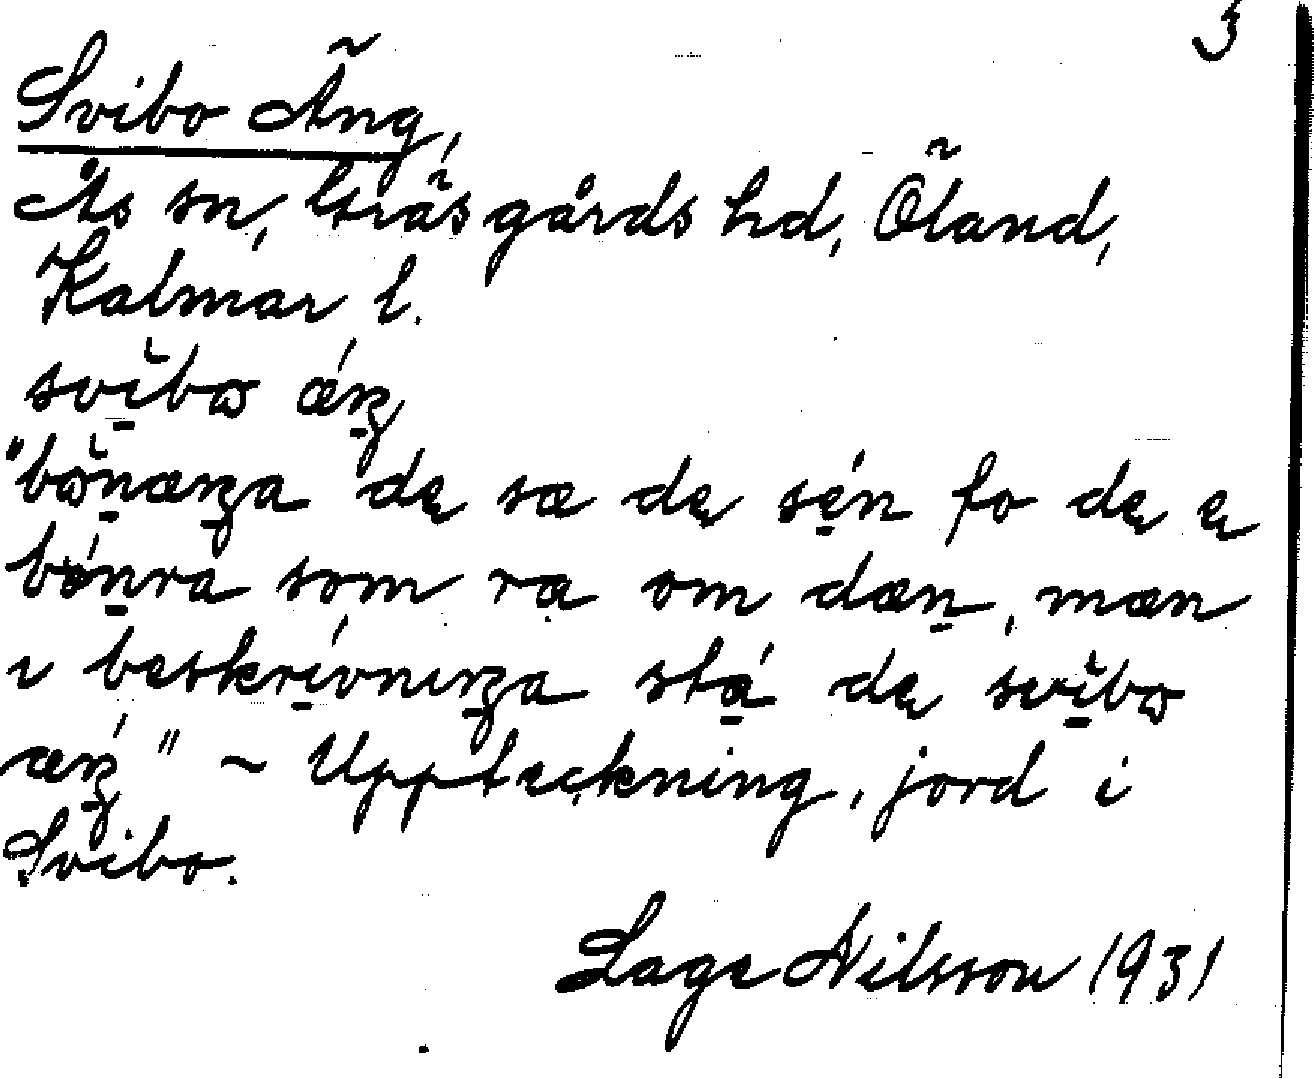 3
Svibo Äng,
Ås sn, Gräsgårds hd, Öland,
Kalmar l.
svibω æŋ
"bωnæŋa dę sæ dę sen fo dę ę
bonra som ra om dæn, mæn
ı beskrivnıŋa sta dę svibω
æŋ" ~ Uppteckning, jord i
Svibo.
Lage Nilsson 1931